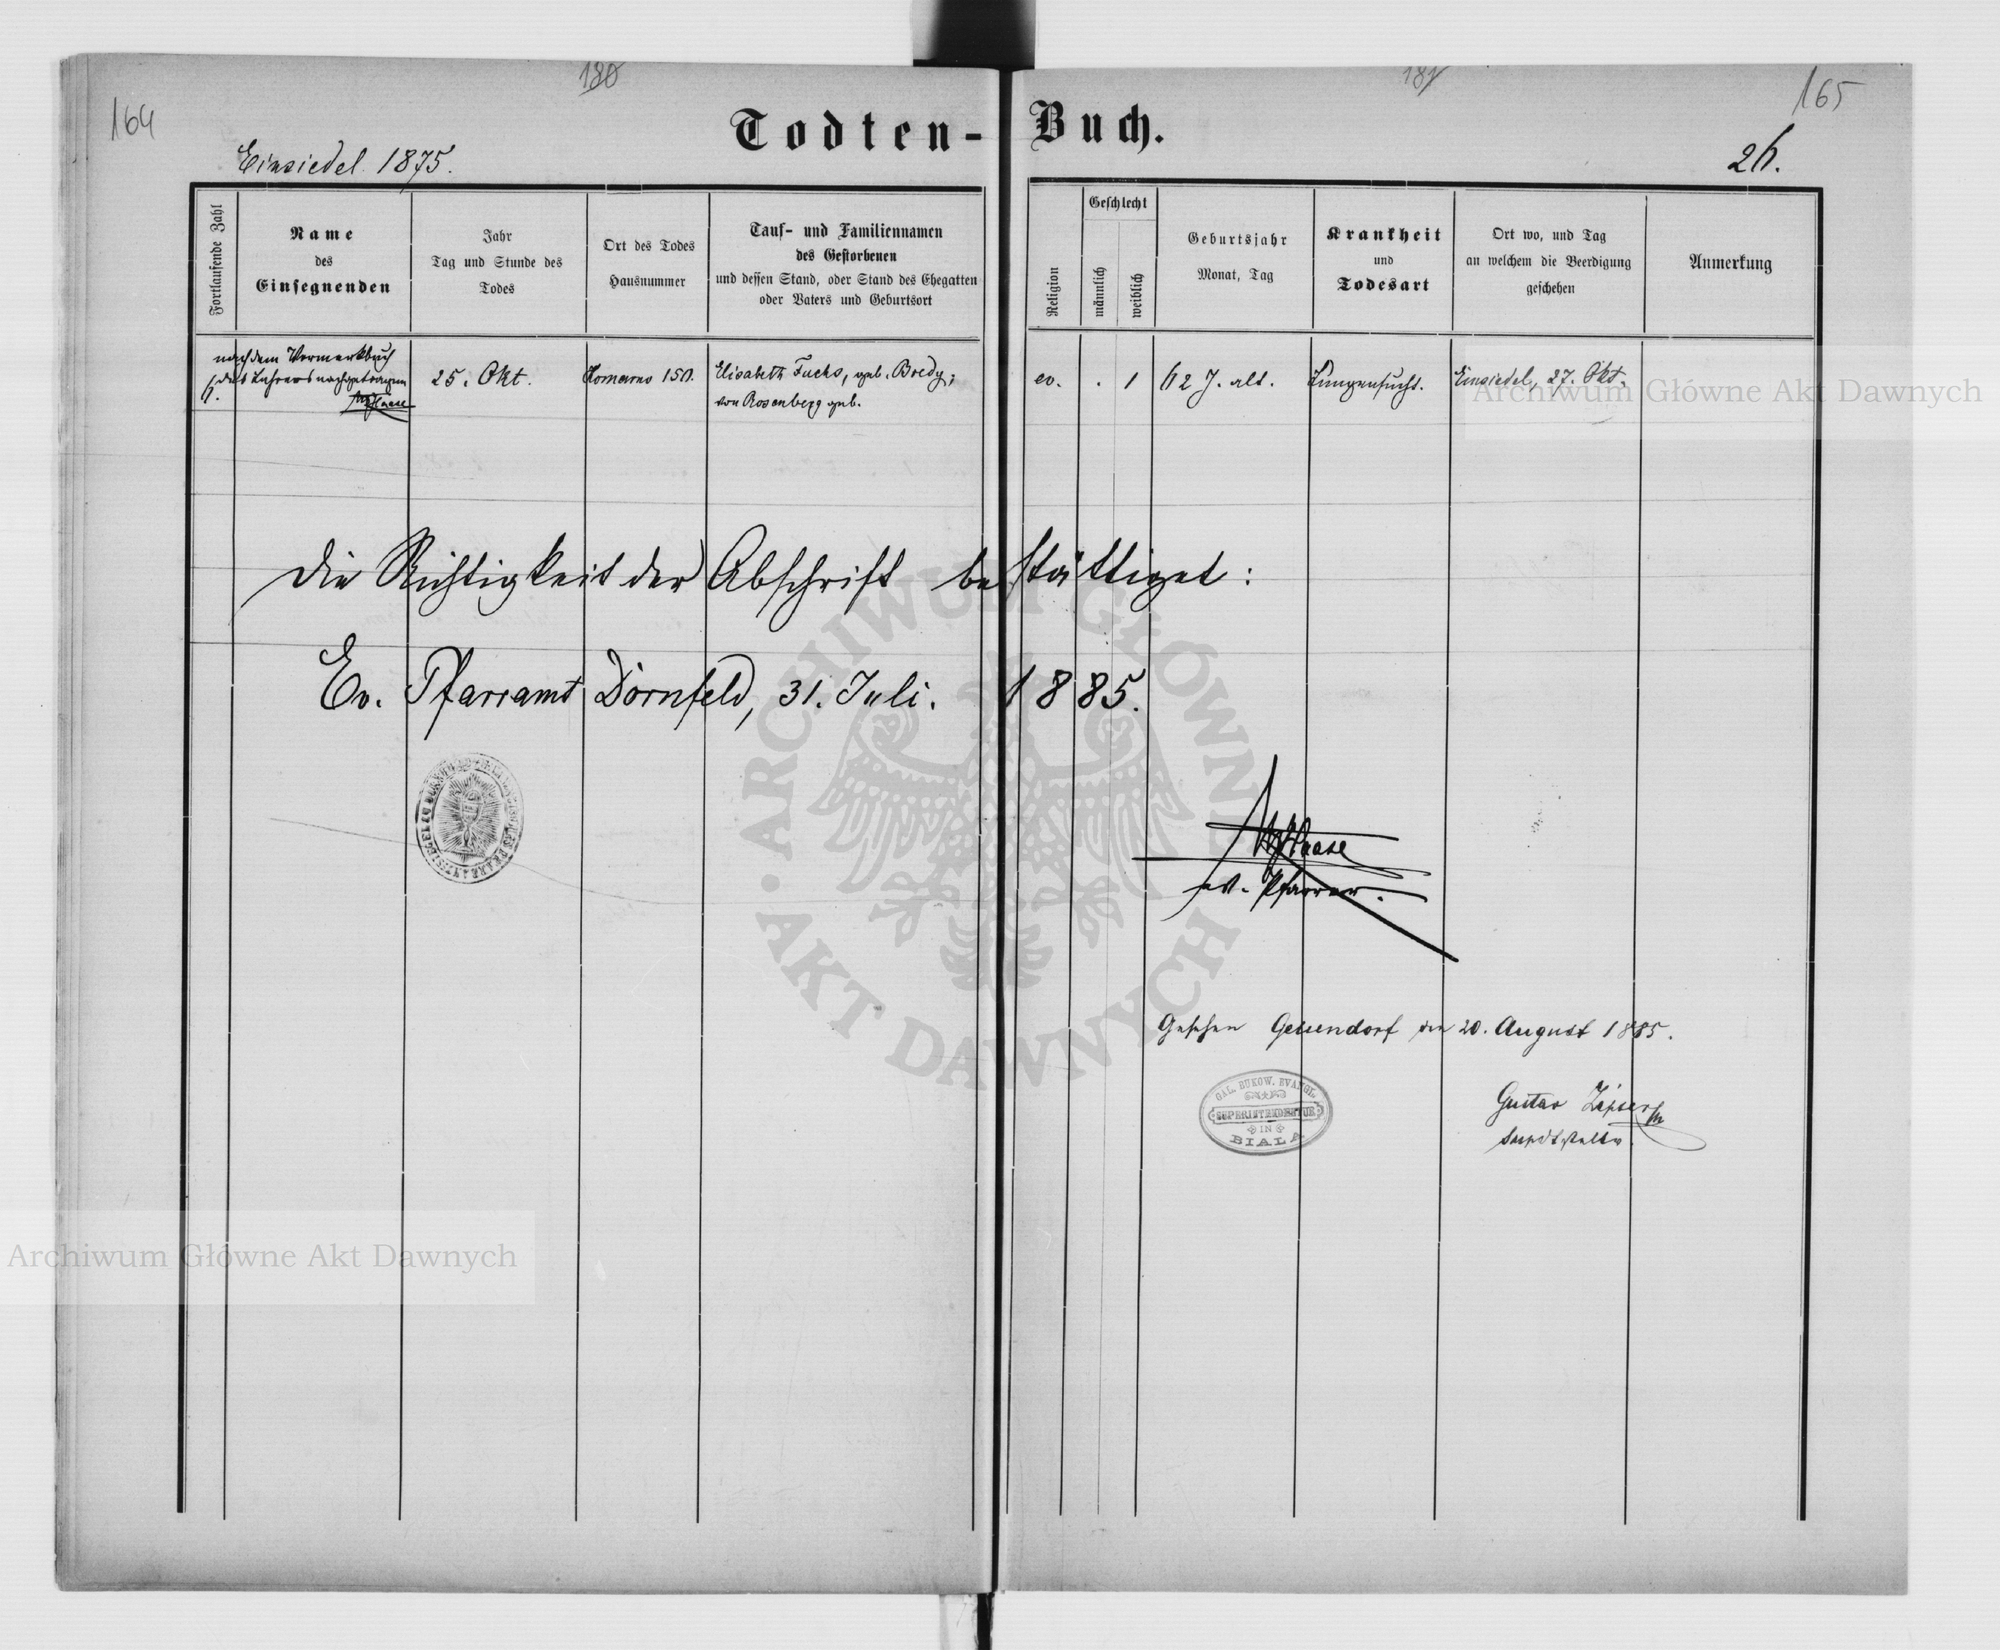 164
180
181
165
Todten-Buch.
Einsiedel 1875.
26.
Fortlaufende Zahl
Name
des
Einsegnenden
Jahr
Tag und Stunde des
Todes
Ort des Todes
Hausnummer
Tauf- und Familiennamen
des Gestorbenen
und dessen Stand, oder Stand des Ehegatten
oder Vaters und Geburtsort
Religion
Geschlecht
männlich
weiblich
Geburtsjahr
Monat, Tag
Krankheit
und
Todesart
Ort wo, und Tag
an welchem die Beerdigung
geschehen
Anmerkung
6.
nach dem Vermerkbuch
des Lehrers nachgetragen
Haase
25. Okt.
Komarno 150.
Elisabeth Fuchs, geb. Bredy;
von Rosenberg geb.
ev.
.
1
62 J. alt.
Lungensucht.
Einsiedel, 27. Okt.
Die Richtigkeit der Abschrift bestättiget:
Ev. Pfarramt Dornfeld, 31. Juli. 1885.
Haase
ev. Pfarrer.
Gesehen Gelsendorf den 20. August 1885.
GAL. BUKOW. EVANGL.
SUPERINTENDENTUR
IN
BIALA
Gustav Zipser
ARCHIWUM GŁÓWNE AKT DAWNYCH
Archiwum Główne Akt Dawnych
Archiwum Główne Akt Dawnych